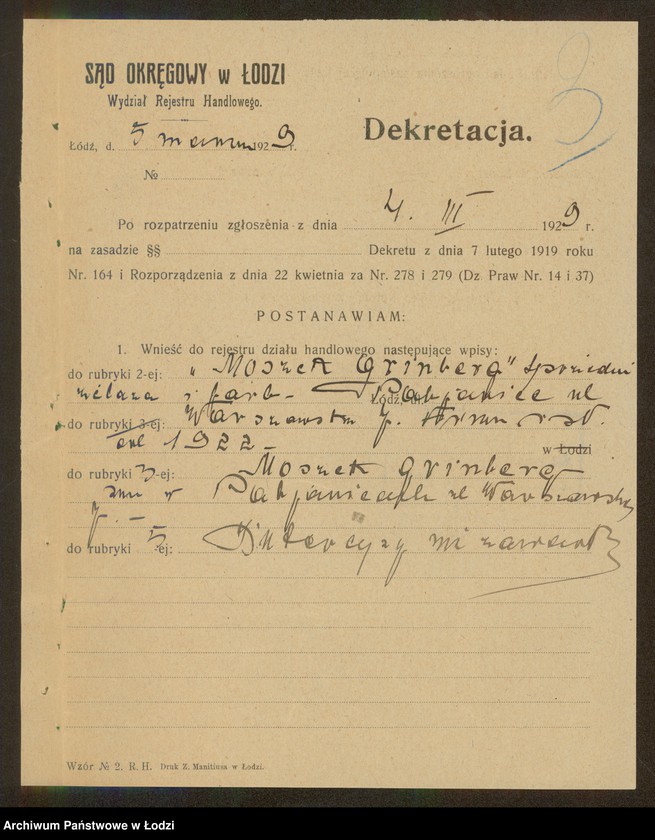 3
SĄD OKRĘGOWY w ŁODZI
Wydział Rejestru Handlowego.
Dekretacja.
Łódź, d. 5 marca 1929 r.
№
Po rozpatrzeniu zgłoszenia z dnia 4. III 1929 r.
na zasadzie §§ Dekretu z dnia 7 lutego 1919 roku
Nr. 164 i Rozporządzenia z dnia 22 kwietnia za Nr. 278 i 279 (Dz Praw Nr. 14 i 37)
POSTANAWIAM:
1. Wnieść do rejestru działu handlowego następujące wpisy:
do rubryki 2-ej: „Moszek Grinberg" sprzedaż
żelaza i farb - Pabjanice ul
do rubryki 3-ej: Warszawska 7. Firma istn.
od 1922 - w Łodzi
do rubryki 3-ej: Moszek Grinberg
zam w Pabjanicach ul Warszawska
7. -
do rubryki 5-ej: Intercyzy nie zawarł
Wzór № 2. R. H. Druk Z. Manitiusa w Łodzi.
Archiwum Państwowe w Łodzi